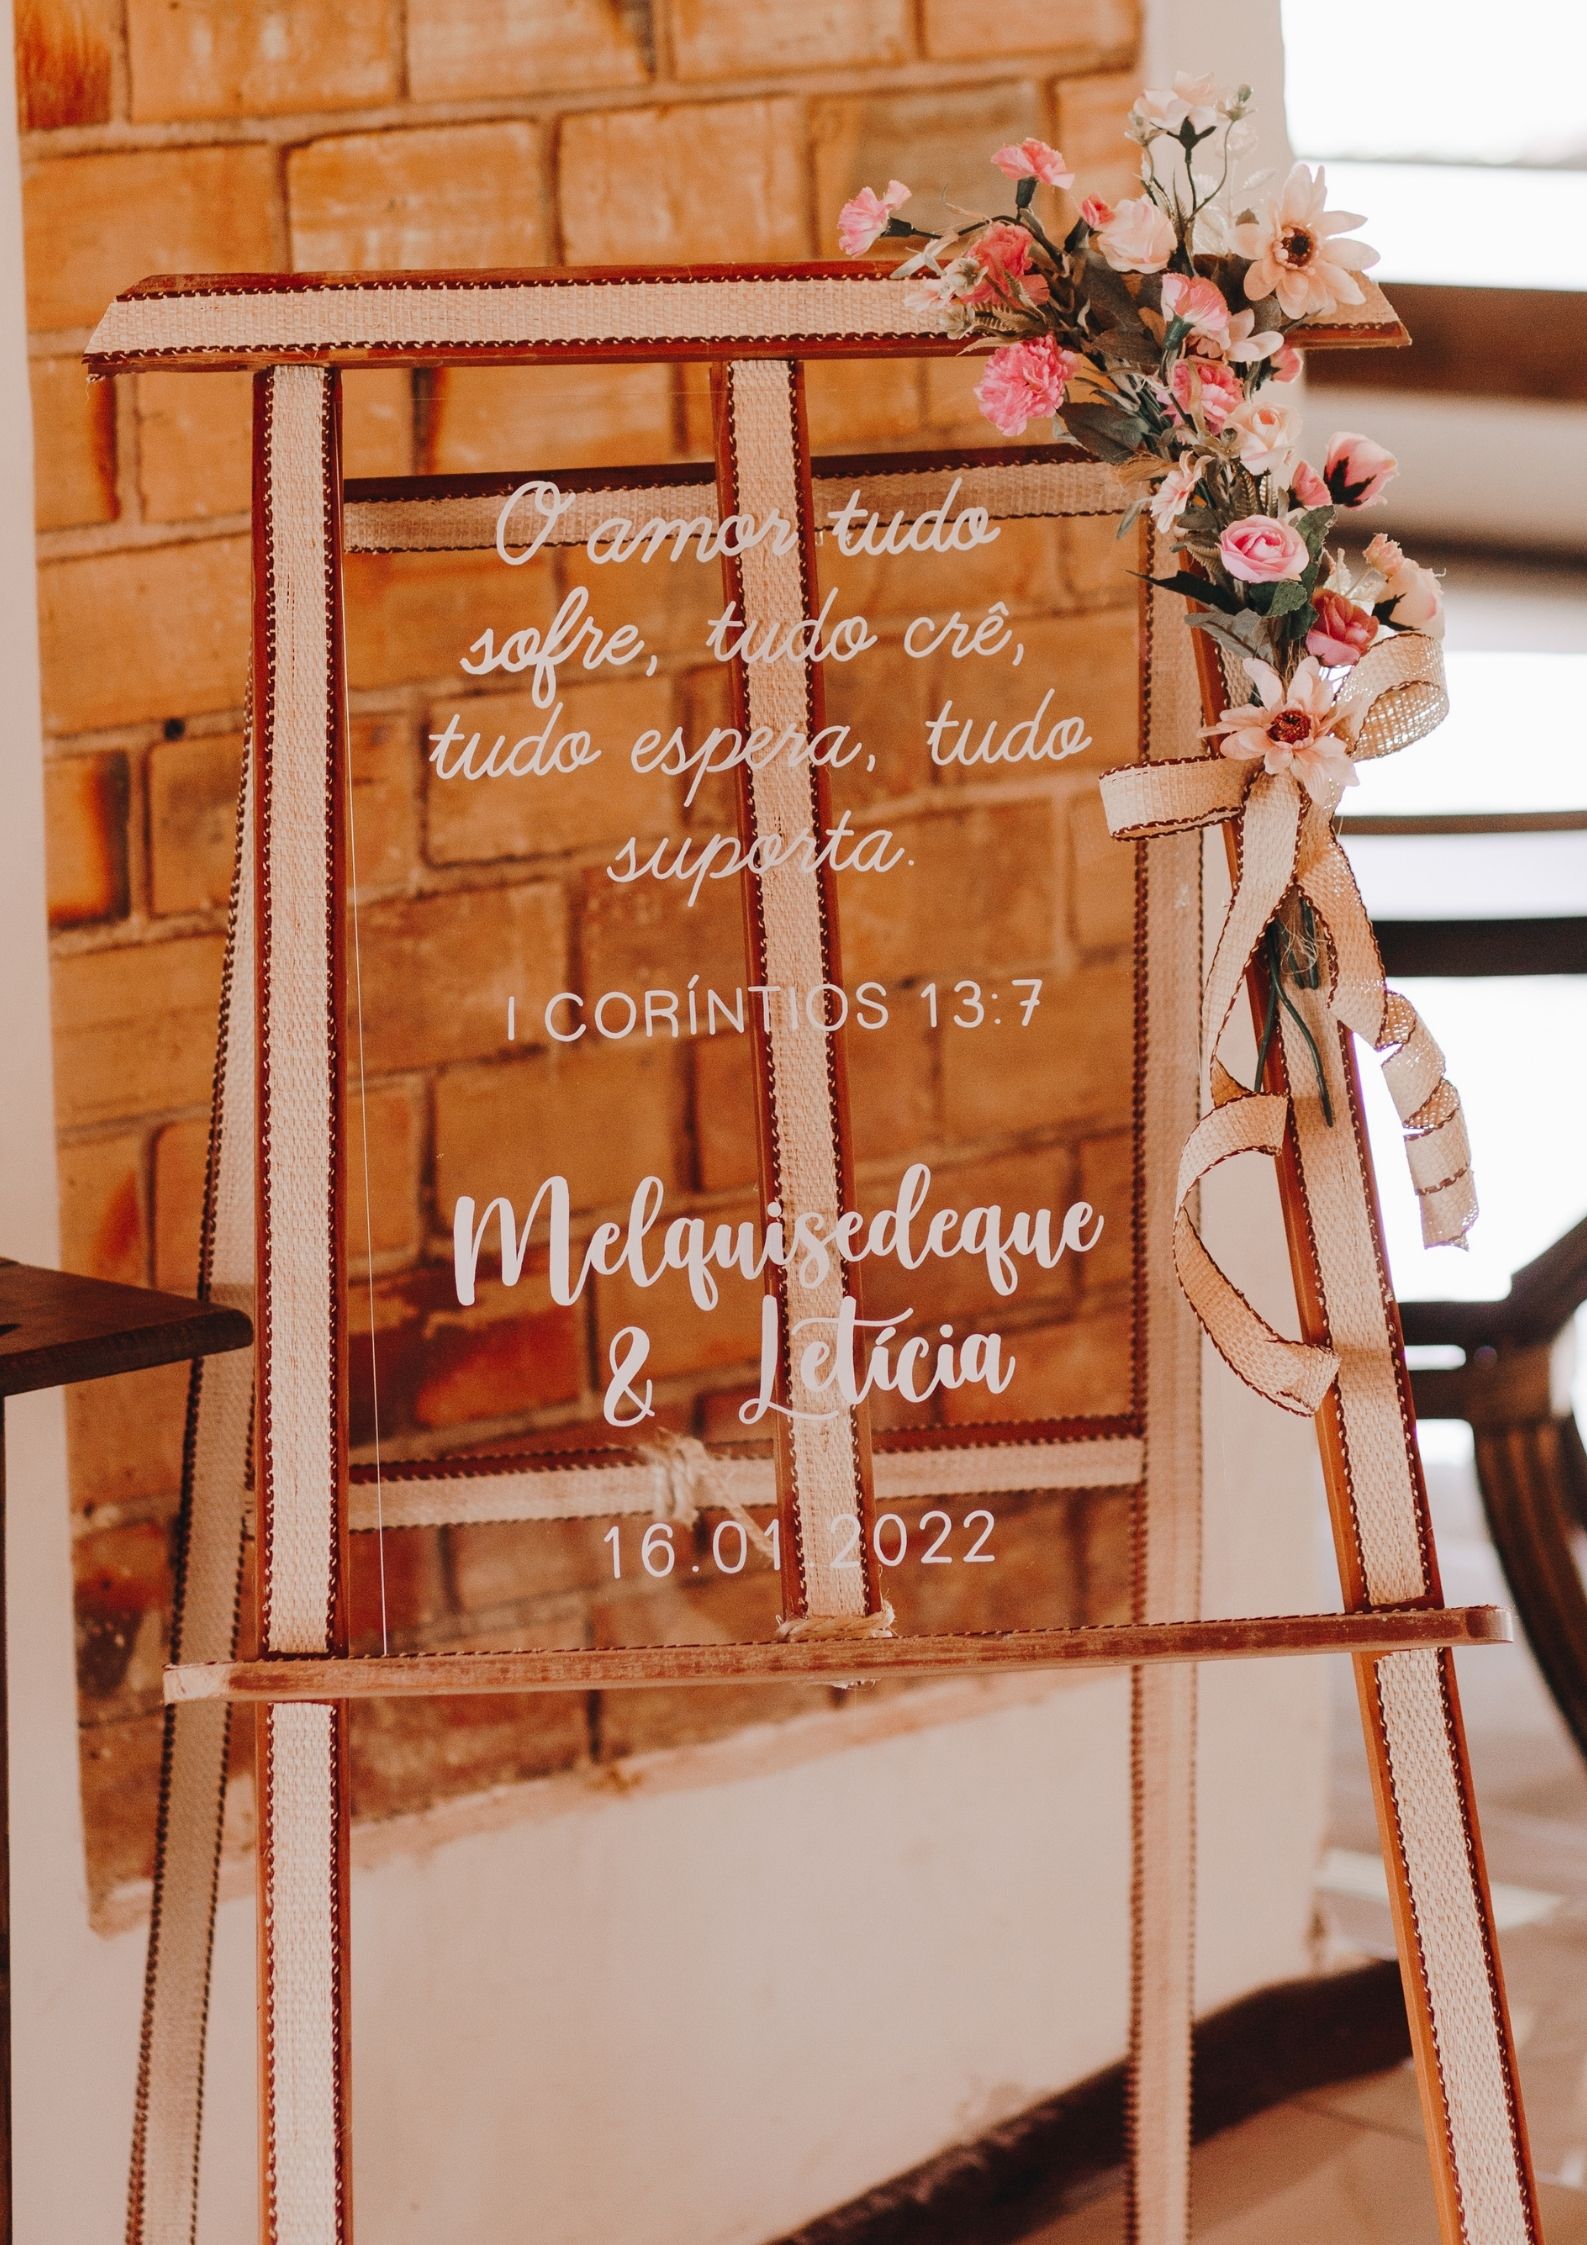 O amor tudo
sofre, tudo crê,
tudo espera, tudo
suporta.
I CORÍNTIOS 13:7
Melquisedeque
& Letícia
16.01 2022